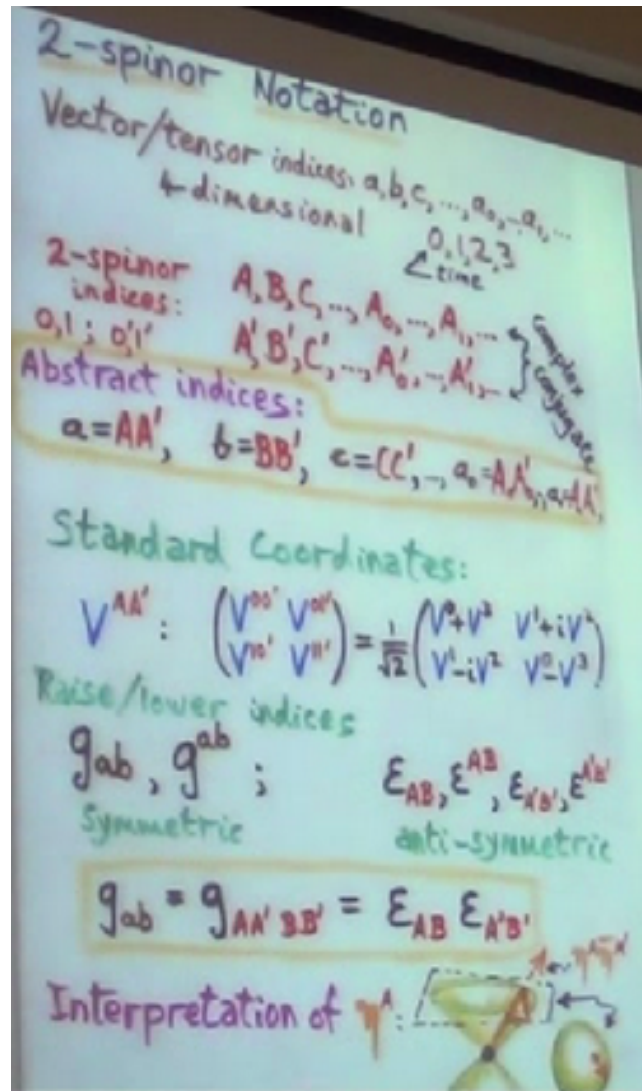 2-spinor Notation
Vector/tensor indices, a,b,c, ..., a₀, .., a₁, ...
4-dimensional 0,1,2,3
time
2-spinor indices: A,B,C, ..., A₀, ..., A₁, ...
0,1 ; 0',1' A',B',C', ..., A'₀, .., A'₁, ..
complex conjugate
Abstract indices:
a=AA', b=BB', c=CC', .., a₀=A₀A'₀, .., a₁=A₁A'₁
Standard Coordinates:
V^{AA'} : (V^{00'} V^{01'}
V^{10'} V^{11'}) = 1/√2 (V⁰+V³ V¹+iV²
V¹-iV² V⁰-V³)
Raise/lower indices
g_{ab}, g^{ab} ; ε_{AB}, ε^{AB}, ε_{A'B'}, ε^{A'B'}
Symmetric anti-symmetric
g_{ab} = g_{AA'BB'} = ε_{AB} ε_{A'B'}
Interpretation of η^A: